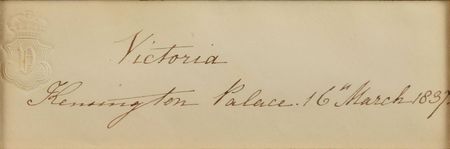 Victoria
Kensington Palace. 16th March 1837.